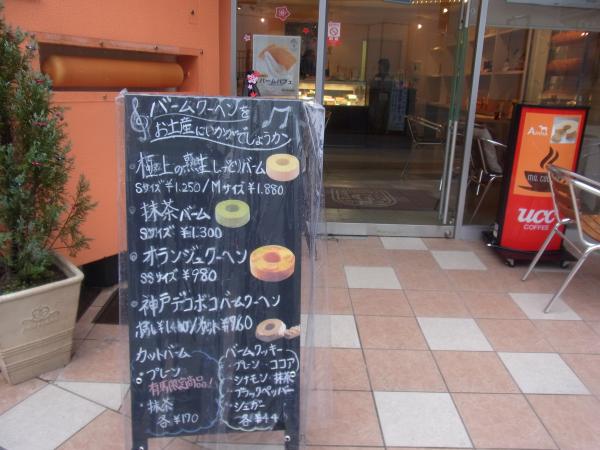 バームクーヘンを
お土産にいかがでしょうか
・極上の熟生しっとりバーム
Sサイズ ¥1.250/Mサイズ ¥1.880
・抹茶バーム
Sサイズ ¥1.300
・オランジュクーヘン
SSサイズ ¥980
・神戸デコボコバームクーヘン
カットバーム
・プレーン
有馬限定商品!
・抹茶
各¥170
バームクッキー
・プレーン・ココア
・シナモン・抹茶
・ブラックペッパー
・シュガー
各¥44
バームパフェ
UCC
COFFEE